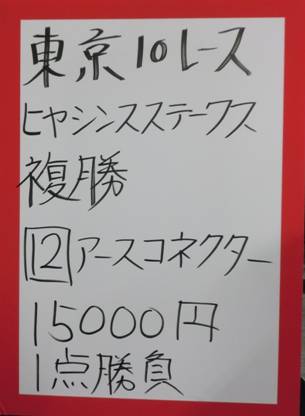 東京10レース
ヒヤシンスステークス
複勝
12 アースコネクター
15000円
1点勝負